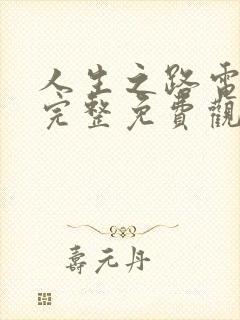 人生之路電
完整免費觀
壽元丹